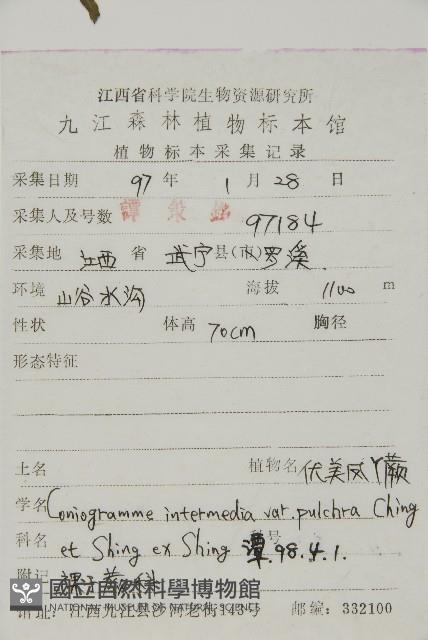 江西省科学院生物资源研究所
九江森林植物标本馆
植物标本采集记录
采集日期 97 年 1 月 28 日
采集人及号数 譚策銘 97184
采集地 江西 省 武宁 县(市) 罗溪
环境 山谷水沟 海拔 1100 m
性状 体高 70cm 胸径
形态特征
土名 植物名 伏美凤丫蕨
学名 Coniogramme intermedia var. pulchra Ching
科名 et Shing ex Shing 科号 潭.98.4.1.
附记 裸子蕨科
國立自然科學博物館
NATIONAL MUSEUM OF NATURAL SCIENCE
馆址: 江西九江县沙河老街143号 邮编: 332100